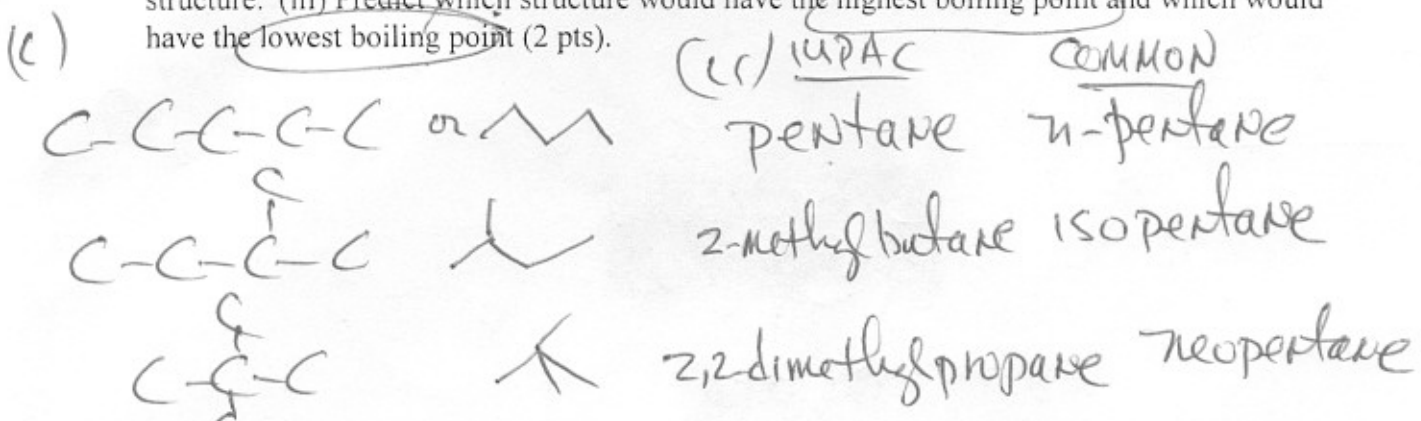 structure. (iii) Predict which structure would have the highest boiling point and which would
have the lowest boiling point (2 pts).
(c) (ii) IUPAC COMMON
C-C-C-C-C or pentane n-pentane
C
C-C-C-C 2-methylbutane isopentane
C
C-C-C 2,2-dimethylpropane neopentane
C